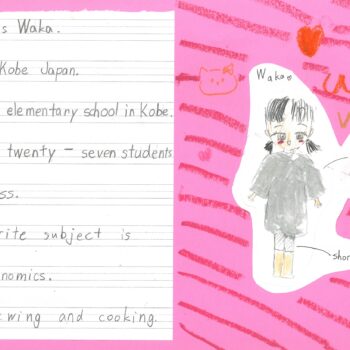 s Waka.
Kobe Japan.
elementary school in Kobe.
twenty - seven students
ss.
rite subject is
nomics.
wing and cooking.
Waka
shor